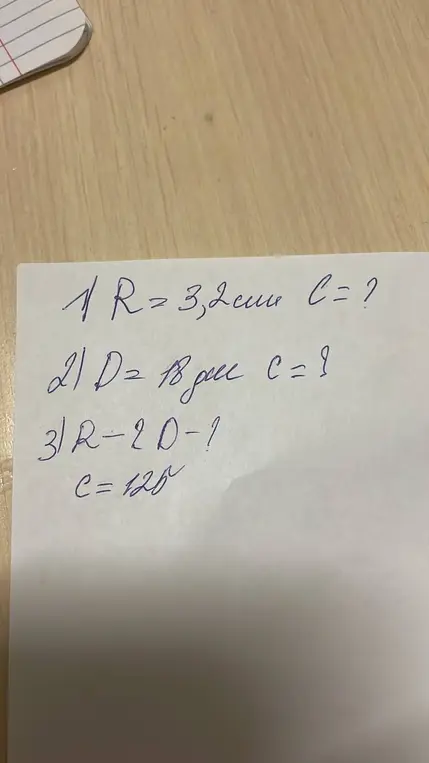 1) R = 3,2 см C = ?
2) D = 18 дм C = ?
3) R - ? D - ?
C = 125